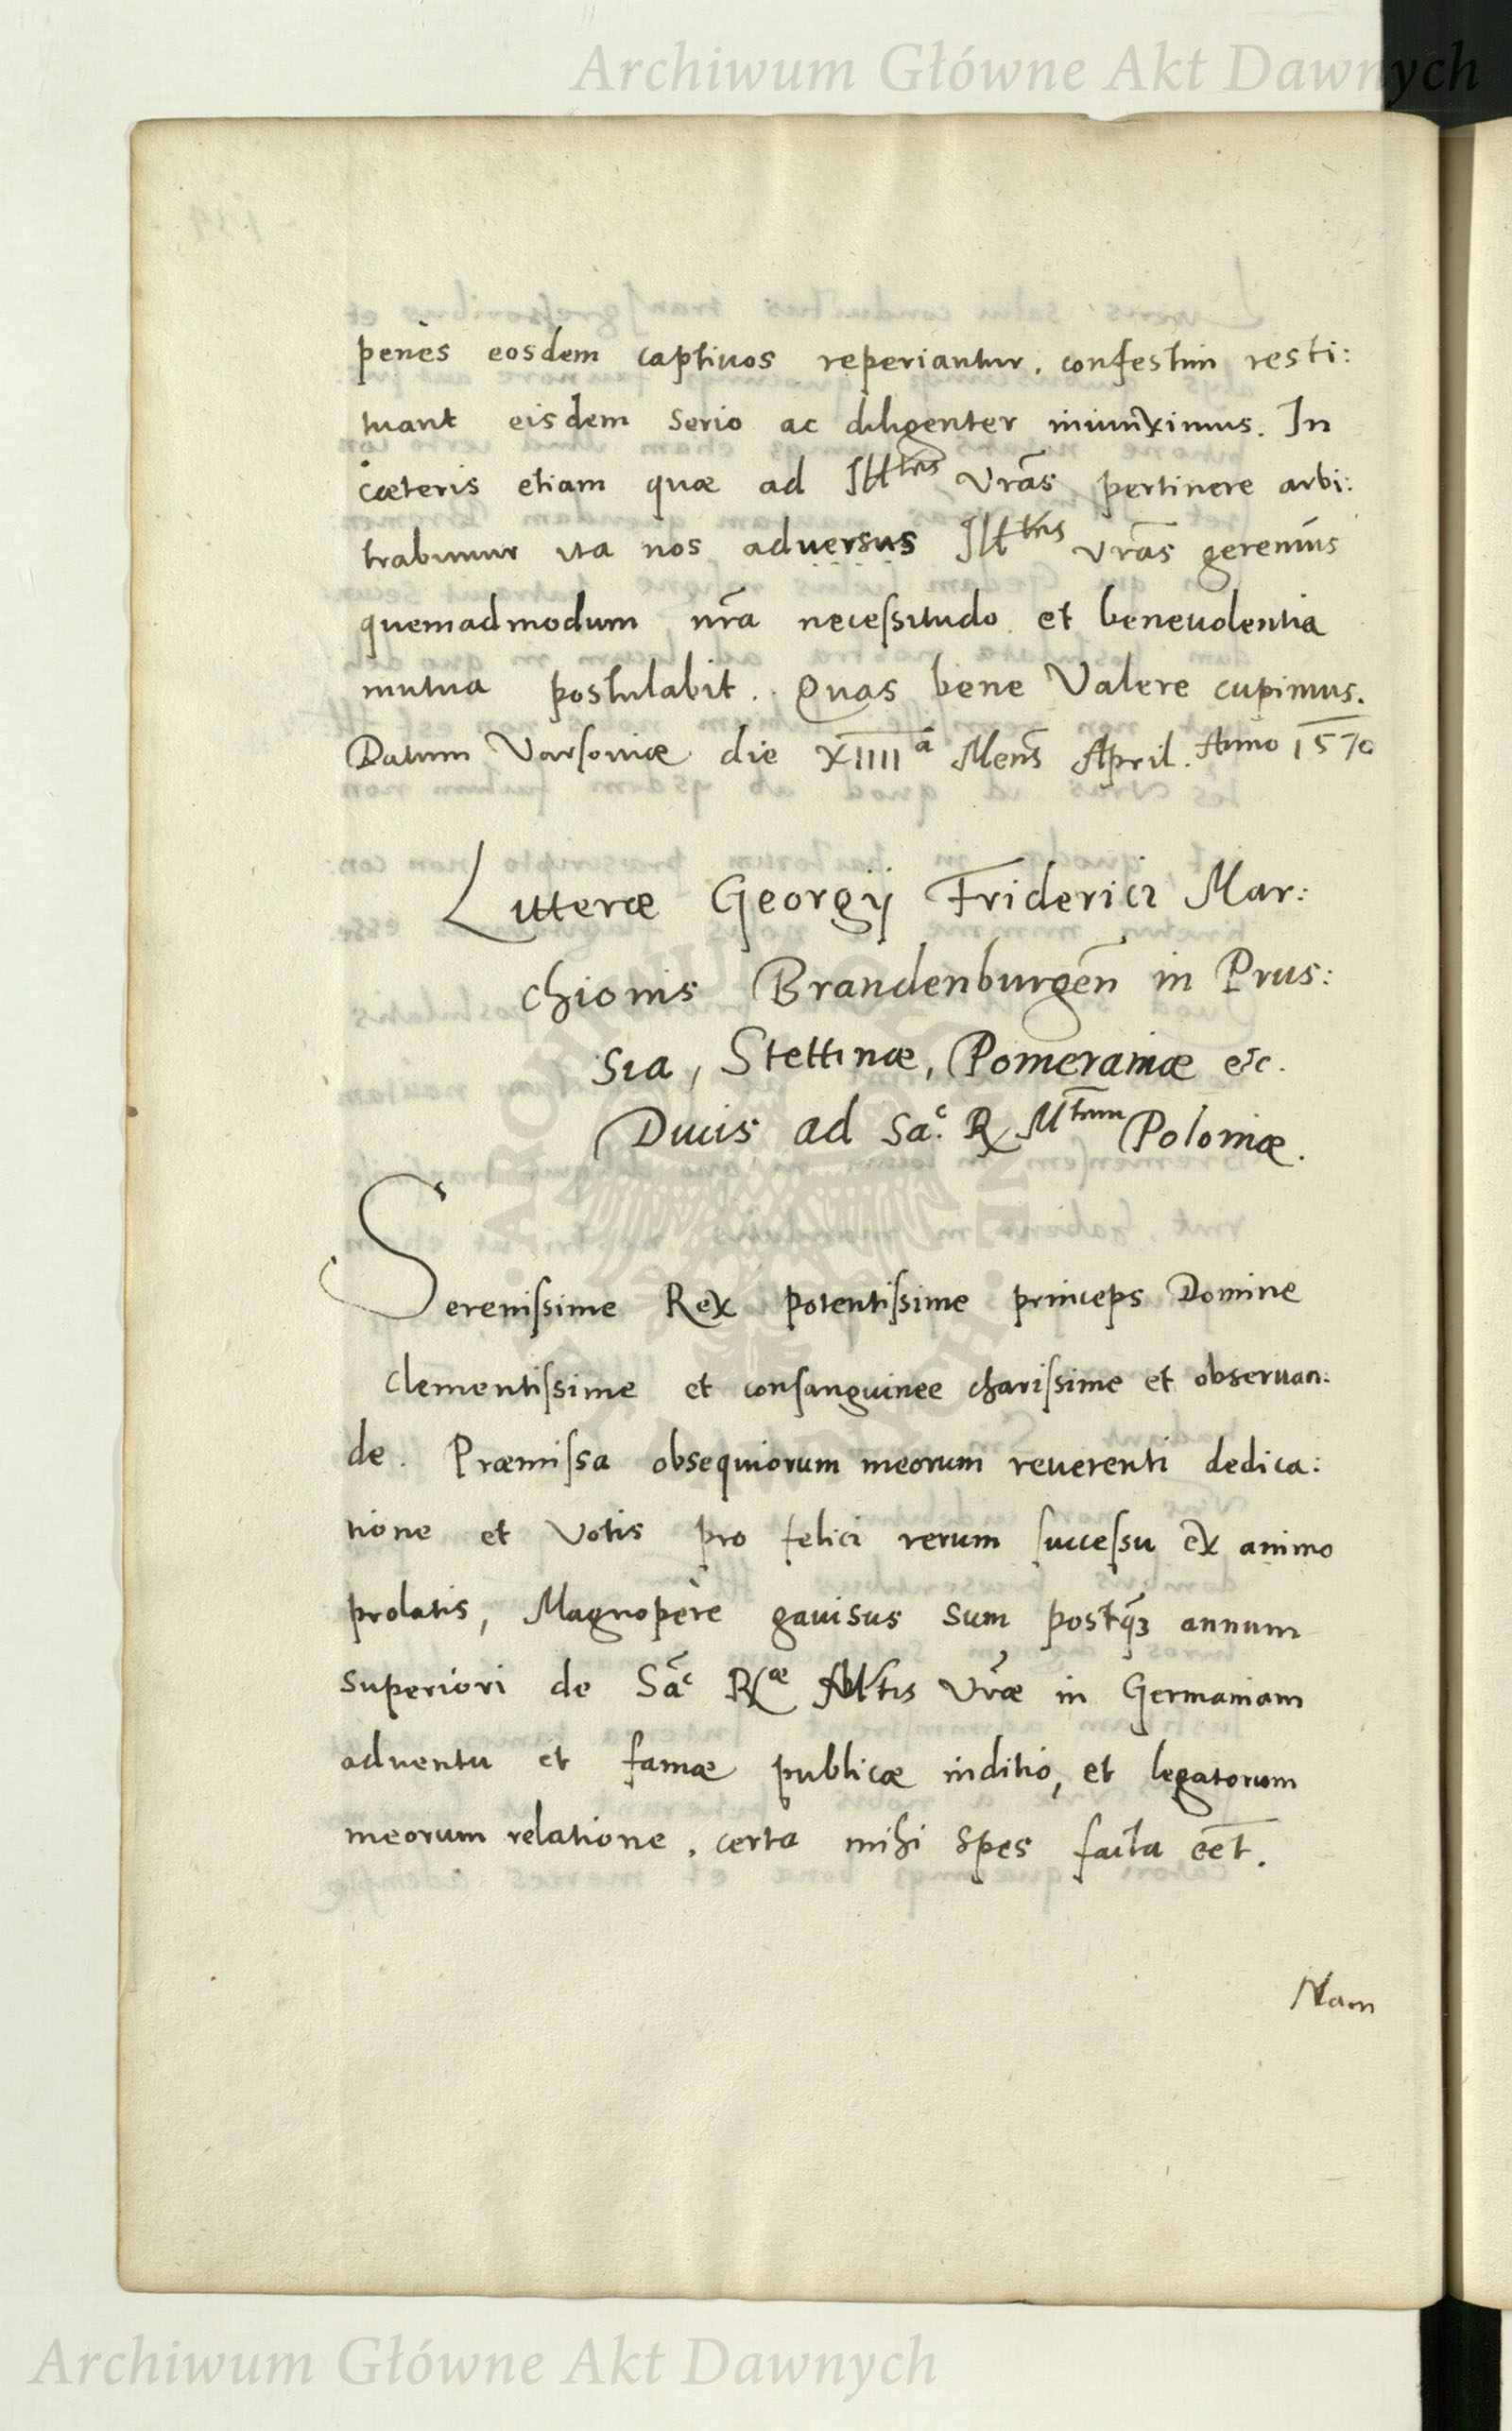 Archiwum Główne Akt Dawnych
penès eosdem captiuos reperiantur. confestim resti:
tuant eisdem serio ac diligenter iniunximus. In
cæteris etiam quæ ad Ill^tes Vrãs pertinere arbi:
trabimur ita nos adversus Ill^tes Vrãs geremus
quemadmodum nr̃a neceſsitudo et beneuolentia
mutua postulabit. Quas bene Valere cupimus.
Datum Varſouiæ die XIIII^a Mens̃ April. Anno 1570
Litteræ Georgij Friderici Mar:
chionis Brandenburgeñ in Prus:
sia, Stettinæ, Pomeraniæ etc.
Ducis ad Sa^c. R M^tem Poloniæ.
Sereniſsime Rex potentiſsime princeps Domine
clementiſsime et conſanguinee chariſsime et obseruan:
de. Præmiſsa obsequiorum meorum reuerenti dedica:
tione et Votis pro felici rerum ſucceſsu ex animo
prolatis, Magnopère gauisus sum postq̃ȝ annum
superiori de Sã^c R^æ Mtis Vr̃æ in Germaniam
aduentu et famæ publicæ inditio, et legatorum
meorum relatione. certa mihi spes facta eẽt.
Nam
Archiwum Główne Akt Dawnych